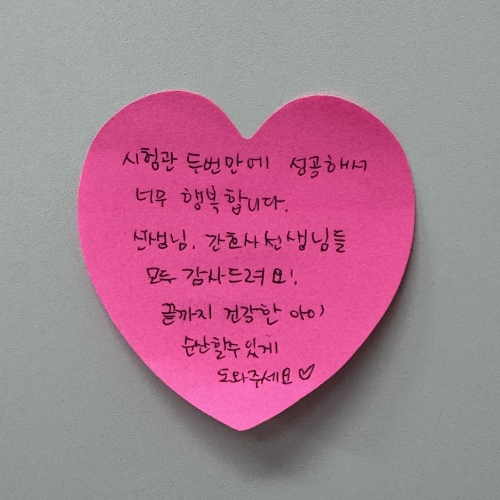 시험관 두번만에 성공해서
너무 행복합니다.
선생님. 간호사선생님들
모두 감사드려요!
끝까지 건강한 아이
순산할수있게
도와주세요♡